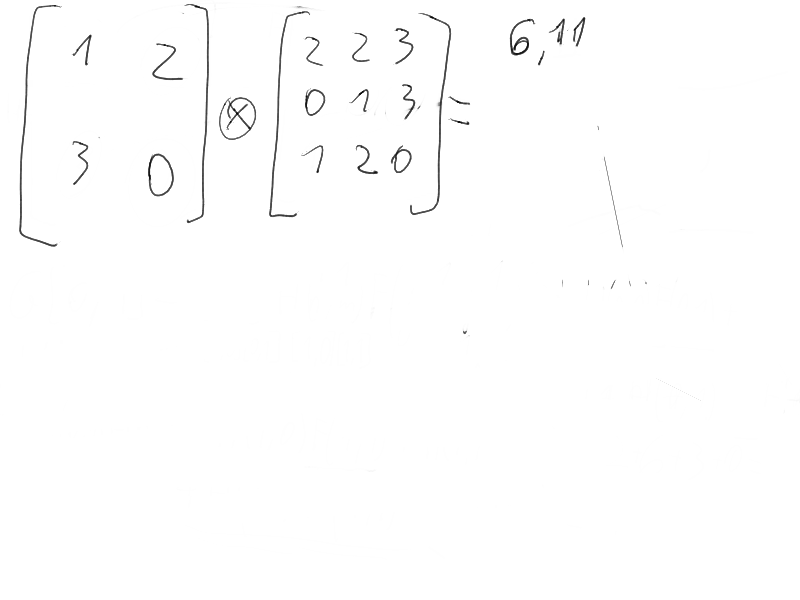 [1 2; 3 0] ⊗ [2 2 3; 0 1 3; 1 2 0] = 6,11